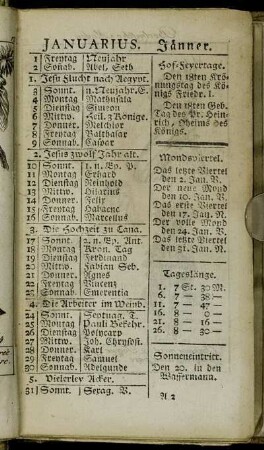 JANUARIUS. Jänner.
1 Freytag Neujahr
2 Sonab. Abel, Seth
1. Jesu Flucht nach Aegypt.
3 Sonnt. n. Neujahr. E.
4 Montag Mathusala
5 Dienstag Simeon
6 Mittw. Heil. 3 Könige.
7 Donner. Melchior
8 Freytag Balthasar
9 Sonab. Caspar
2. Jesus zwölf Jahr alt.
10 Sonnt. 1. n. Ep. P.
11 Montag Erhard
12 Dienstag Reinhold
13 Mittw. Hilarius
14 Donner. Felix
15 Freytag Habacuc
16 Sonab. Marcellus
3. Die Hochzeit zu Cana.
17 Sonnt. 2. n. Ep. Ant.
18 Montag Krön. Tag
19 Dienstag Ferdinand
20 Mittw. Fabian Seb.
21 Donner. Agnes
22 Freytag Vincent
23 Sonab. Emerentia
4. Die Arbeiter im Weinb.
24 Sonnt. Septuag. T.
25 Montag Pauli Bekehr.
26 Dienstag Polycarp
27 Mittw. Joh. Chrysost.
28 Donner. Karl
29 Freytag Samuel
30 Sonab. Adelgunde
5. Vielerley Acker.
31 Sonnt. Sexag. V.
Hof-Feyertage.
Den 18ten Krö-
nungstag des Kö-
nigs Friedr. I.
Den 18ten Geb.
Tag des Pr. Hein-
rich, Oheims des
Königs.
Mondsviertel.
Das letzte Viertel
den 2. Jan. V.
Der neue Mond
den 10. Jan. V.
Das erste Viertel
den 17. Jan. N.
Der volle Mond
den 24. Jan. V.
Das letzte Viertel
den 31. Jan. N.
Tageslänge.
1. 7 St. 30 M.
6. 7 — 38 —
11. 7 — 47 —
16. 8 — 0 —
21. 8 — 16 —
26. 8 — 30 —
Sonneneintritt.
Den 20. in den
Wassermann.
A 2